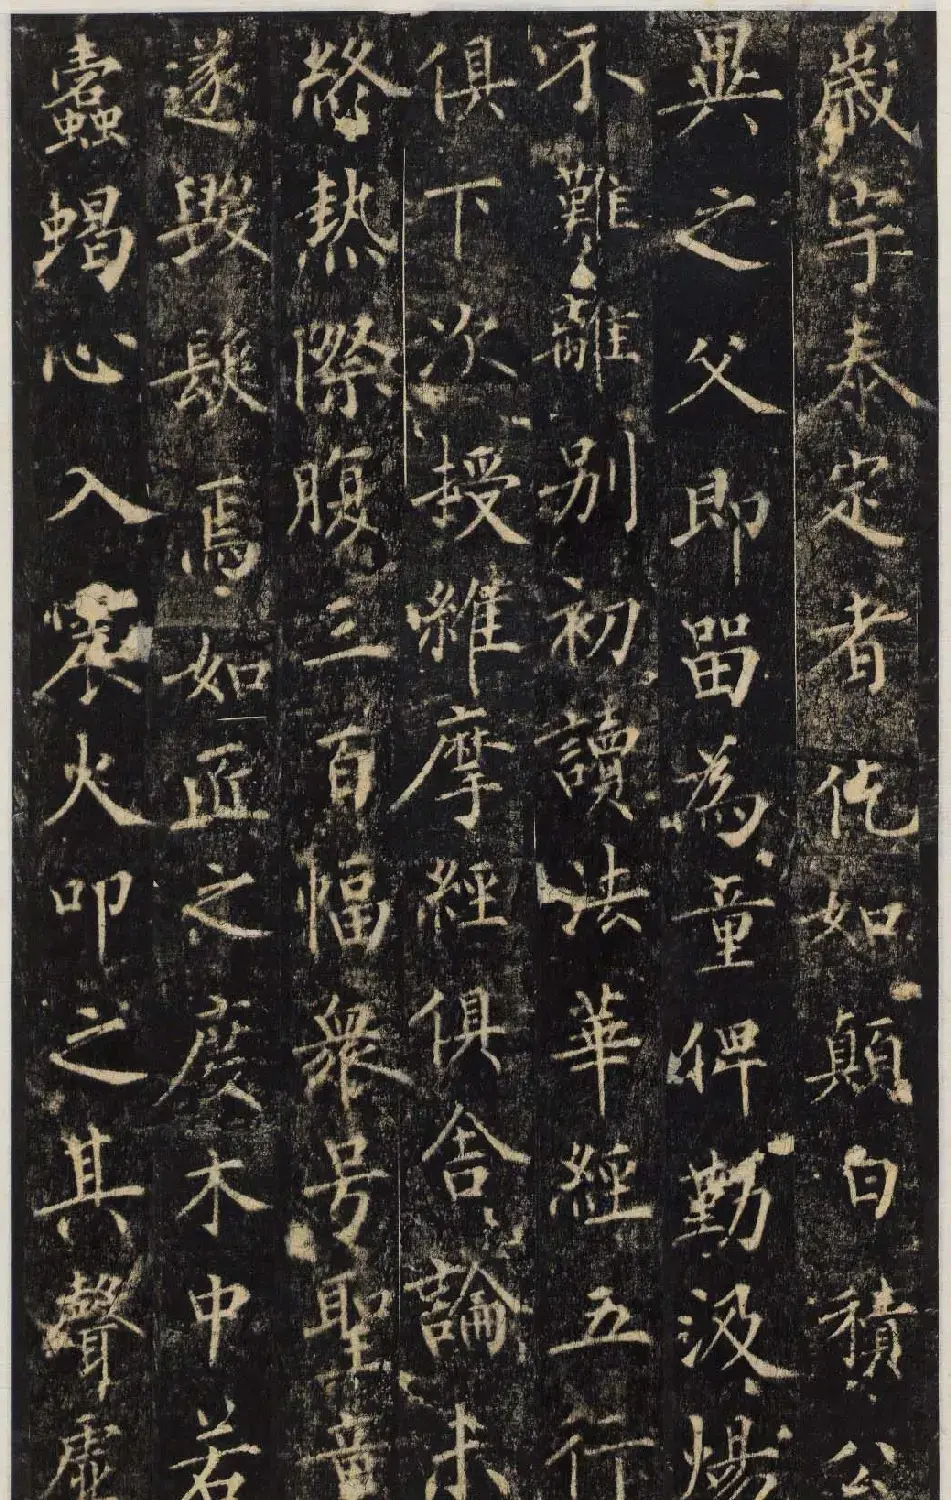 歲宇泰定者仡如顛白積公
異之父即畱為童俾勤汲煬
不難離別初讀法華經五行
俱下次授維摩經俱舍論未
終熱際腹三百幅衆号聖童
遂毀髮焉如匠之度木中若
蠹蝎心入火叩之其聲虛